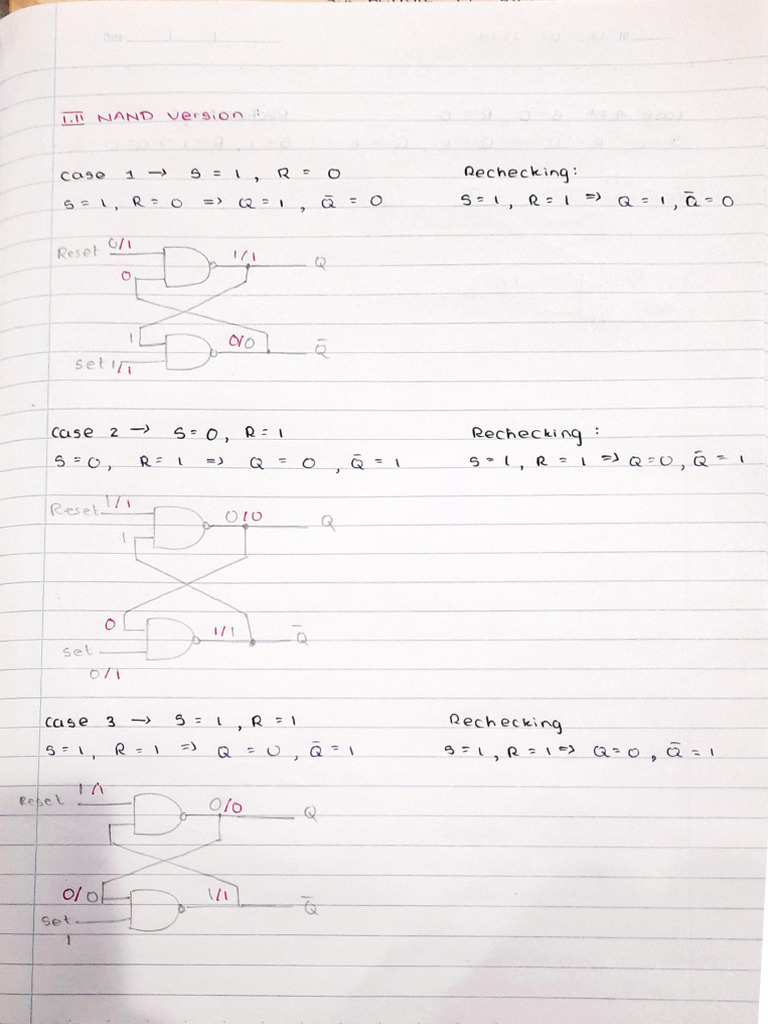 I.II NAND version :
Case 1 → S = 1 , R = 0
Rechecking:
S = 1, R = 0 => Q = 1 , Q̄ = 0
S = 1, R = 1 => Q = 1, Q̄ = 0
Reset 0/1
1/1
Q
0
1
0/0
Q̄
set 1/1
Case 2 → S = 0, R = 1
Rechecking :
S = 0, R = 1 => Q = 0 , Q̄ = 1
S = 1, R = 1 => Q=0, Q̄ = 1
Reset 1/1
0/0
Q
1
0
1/1
Q̄
set
0/1
Case 3 → S = 1 , R = 1
Rechecking
S = 1, R = 1 => Q = 0 , Q̄ = 1
S = 1, R = 1 => Q=0 , Q̄ = 1
Reset 1/1
0/0
Q
0/0
1/1
Q̄
set
1